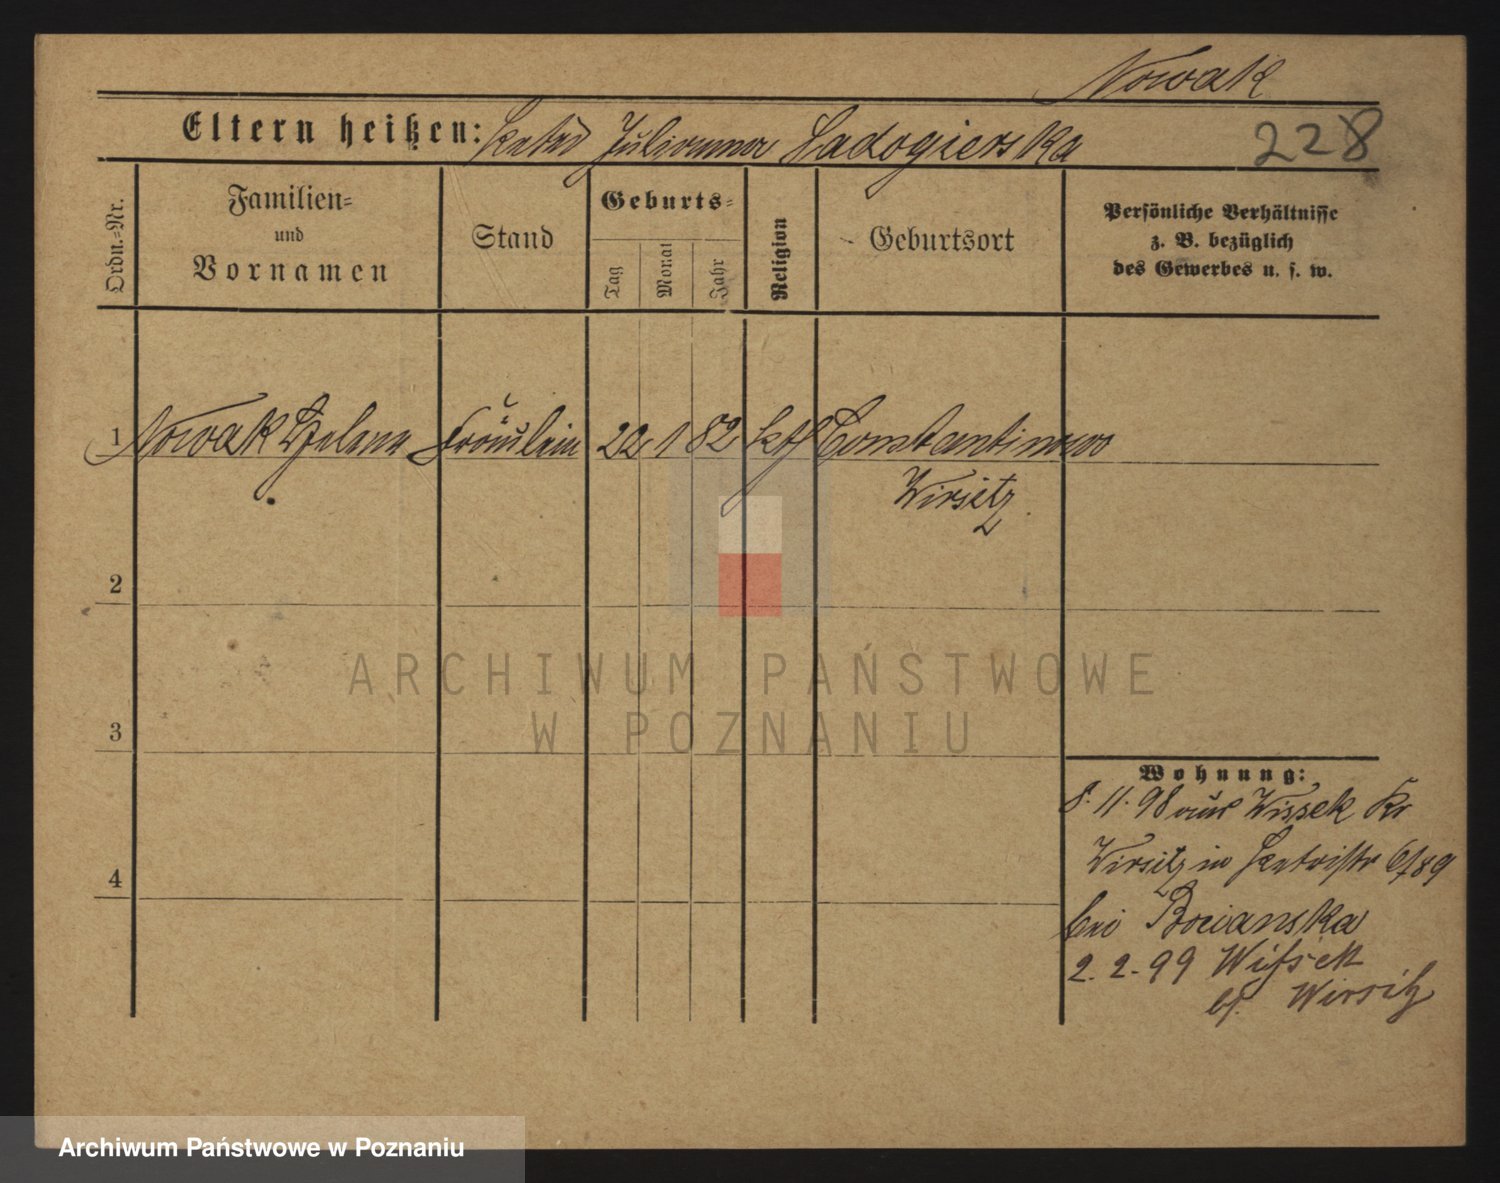 Nowak
Eltern heißen: Julianna Ladogierska
228
Ordn.-Nr.
Familien-
und
Vornamen
Stand
Geburts-
Tag
Monat
Jahr
Religion
Geburtsort
Persönliche Verhältnisse
z. B. bezüglich
des Gewerbes u. s. w.
1 Nowak Helena Fräulein 22 1 82 kth Constantinowo
Wirsitz
2
3
4
Wohnung:
8. 11. 98 aus Wissek Kr
Wirsitz in 6/89
bei Bocianska
2. 2. 99 Wissek
b. Wirsitz
ARCHIWUM PAŃSTWOWE
W POZNANIU
Archiwum Państwowe w Poznaniu